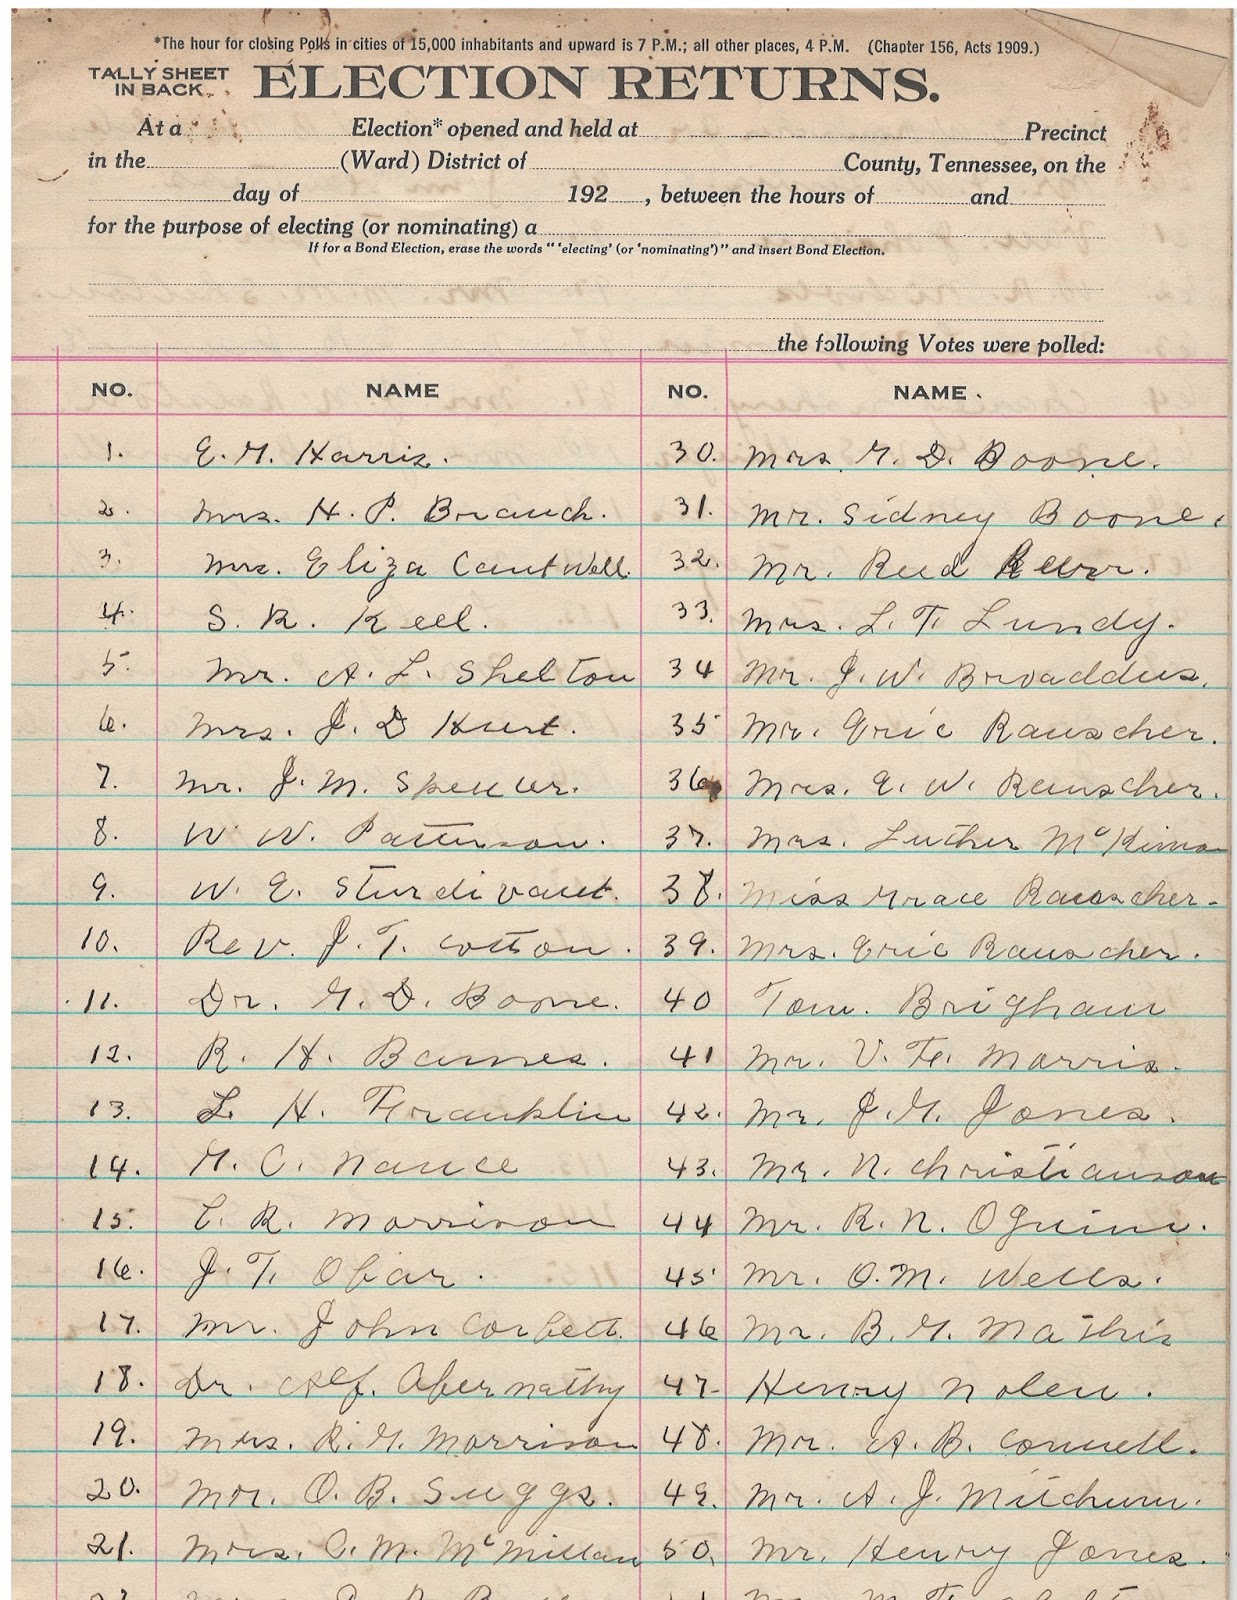 *The hour for closing Polls in cities of 15,000 inhabitants and upward is 7 P.M.; all other places, 4 P.M. (Chapter 156, Acts 1909.)
TALLY SHEET
IN BACK.
ELECTION RETURNS.
At a Election* opened and held at Precinct
in the (Ward) District of County, Tennessee, on the
day of 192 , between the hours of and
for the purpose of electing (or nominating) a
If for a Bond Election, erase the words "'electing' (or 'nominating')" and insert Bond Election.
the following Votes were polled:
NO. NAME NO. NAME
1. E. G. Harris. 30. Mrs. G. D. Boone.
2. Mrs. H. P. Branch. 31. Mr. Sidney Boone.
3. Mrs. Eliza Cantwell. 32. Mr. Reed
4. S. R. Keel. 33. Mrs. L. F. Lundy.
5. Mr. A. L. Shelton 34 Mr. J. W. Broaddus.
6. Mrs. J. D Hurt. 35 Mr. Eric Rauscher.
7. Mr. J. M. Spencer. 36 Mrs. E. W. Rauscher.
8. W W. Patterson. 37. Mrs. Luther
9. W. E. Sturdivant. 38. Miss Grace Rauscher.
10. Rev. J. T. Cotton. 39. Mrs. Eric Rauscher.
11. Dr. G. D. Boone. 40 Tom. Brigham
12. R. H. Barnes. 41 Mr. V. F. Morris.
13. L. H. Franklin 42. Mr. J. G. Jones.
14. G. C. Nance 43. Mr. N. Christianson
15. C. R. Morrison 44 Mr. R. N. OGuinn.
16. J. T. Obar. 45 Mr. O. M. Wells.
17. Mr. John Corbett. 46 Mr. B. G. Mathis
18. Dr. Alf. Abernathy 47 Henry Nolen.
19. Mrs. R. G. Morrison 48. Mr. A. B. Connell.
20. Mr. O. B. Suggs. 49. Mr. A. J. Mitchum.
21. Mrs. C. M. McMillan 50. Mr. Henry Jones.